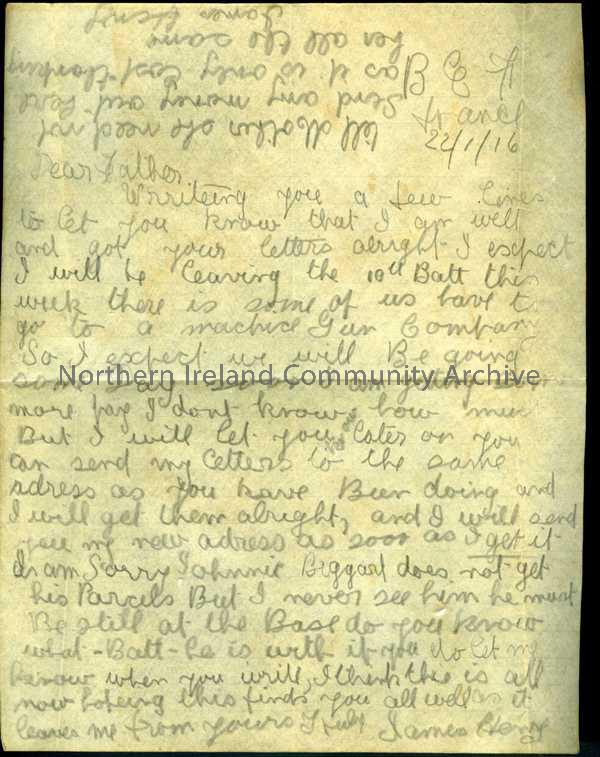 B E F
France
22/1/16
Dear Father
Writeing you a few lines
to let you know that I am well
and got your letters alright I expect
I will be leaving the 10th Batt this
week there is some of us have to
go to a machine Gun Company
So I expect we will Be going
some day
more pay I dont know how much
But I will let you know later on you
can send my letters to the same
adress as you have Been doing and
I will get them alright, and I will send
you my new adress as soon as I get it
I am Sorry Johnnie Biggart does not get
his Parcels But I never see him he must
Be still at the Base do you know
what-Batt-he is with if you do let my
know when you write, I think this is all
now hopeing this finds you all well as it
leaves me from yours Truly James Henry
tell Mother she need not
send any money out here
as it is only lost thanking
her all the same
James Henry
Northern Ireland Community Archive